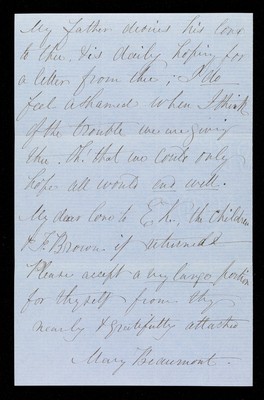 My Father desires his love
to thee, & is daily hoping for
a letter from thee; I do
feel ashamed when I think
of the trouble we are giving
thee. Oh! that we could only
hope all would end well.
My dear love to E. h., the children
& F Brown if returned
Please accept a very large portion
for thyself from thy
nearly & gratefully attached
Mary Beaumont.